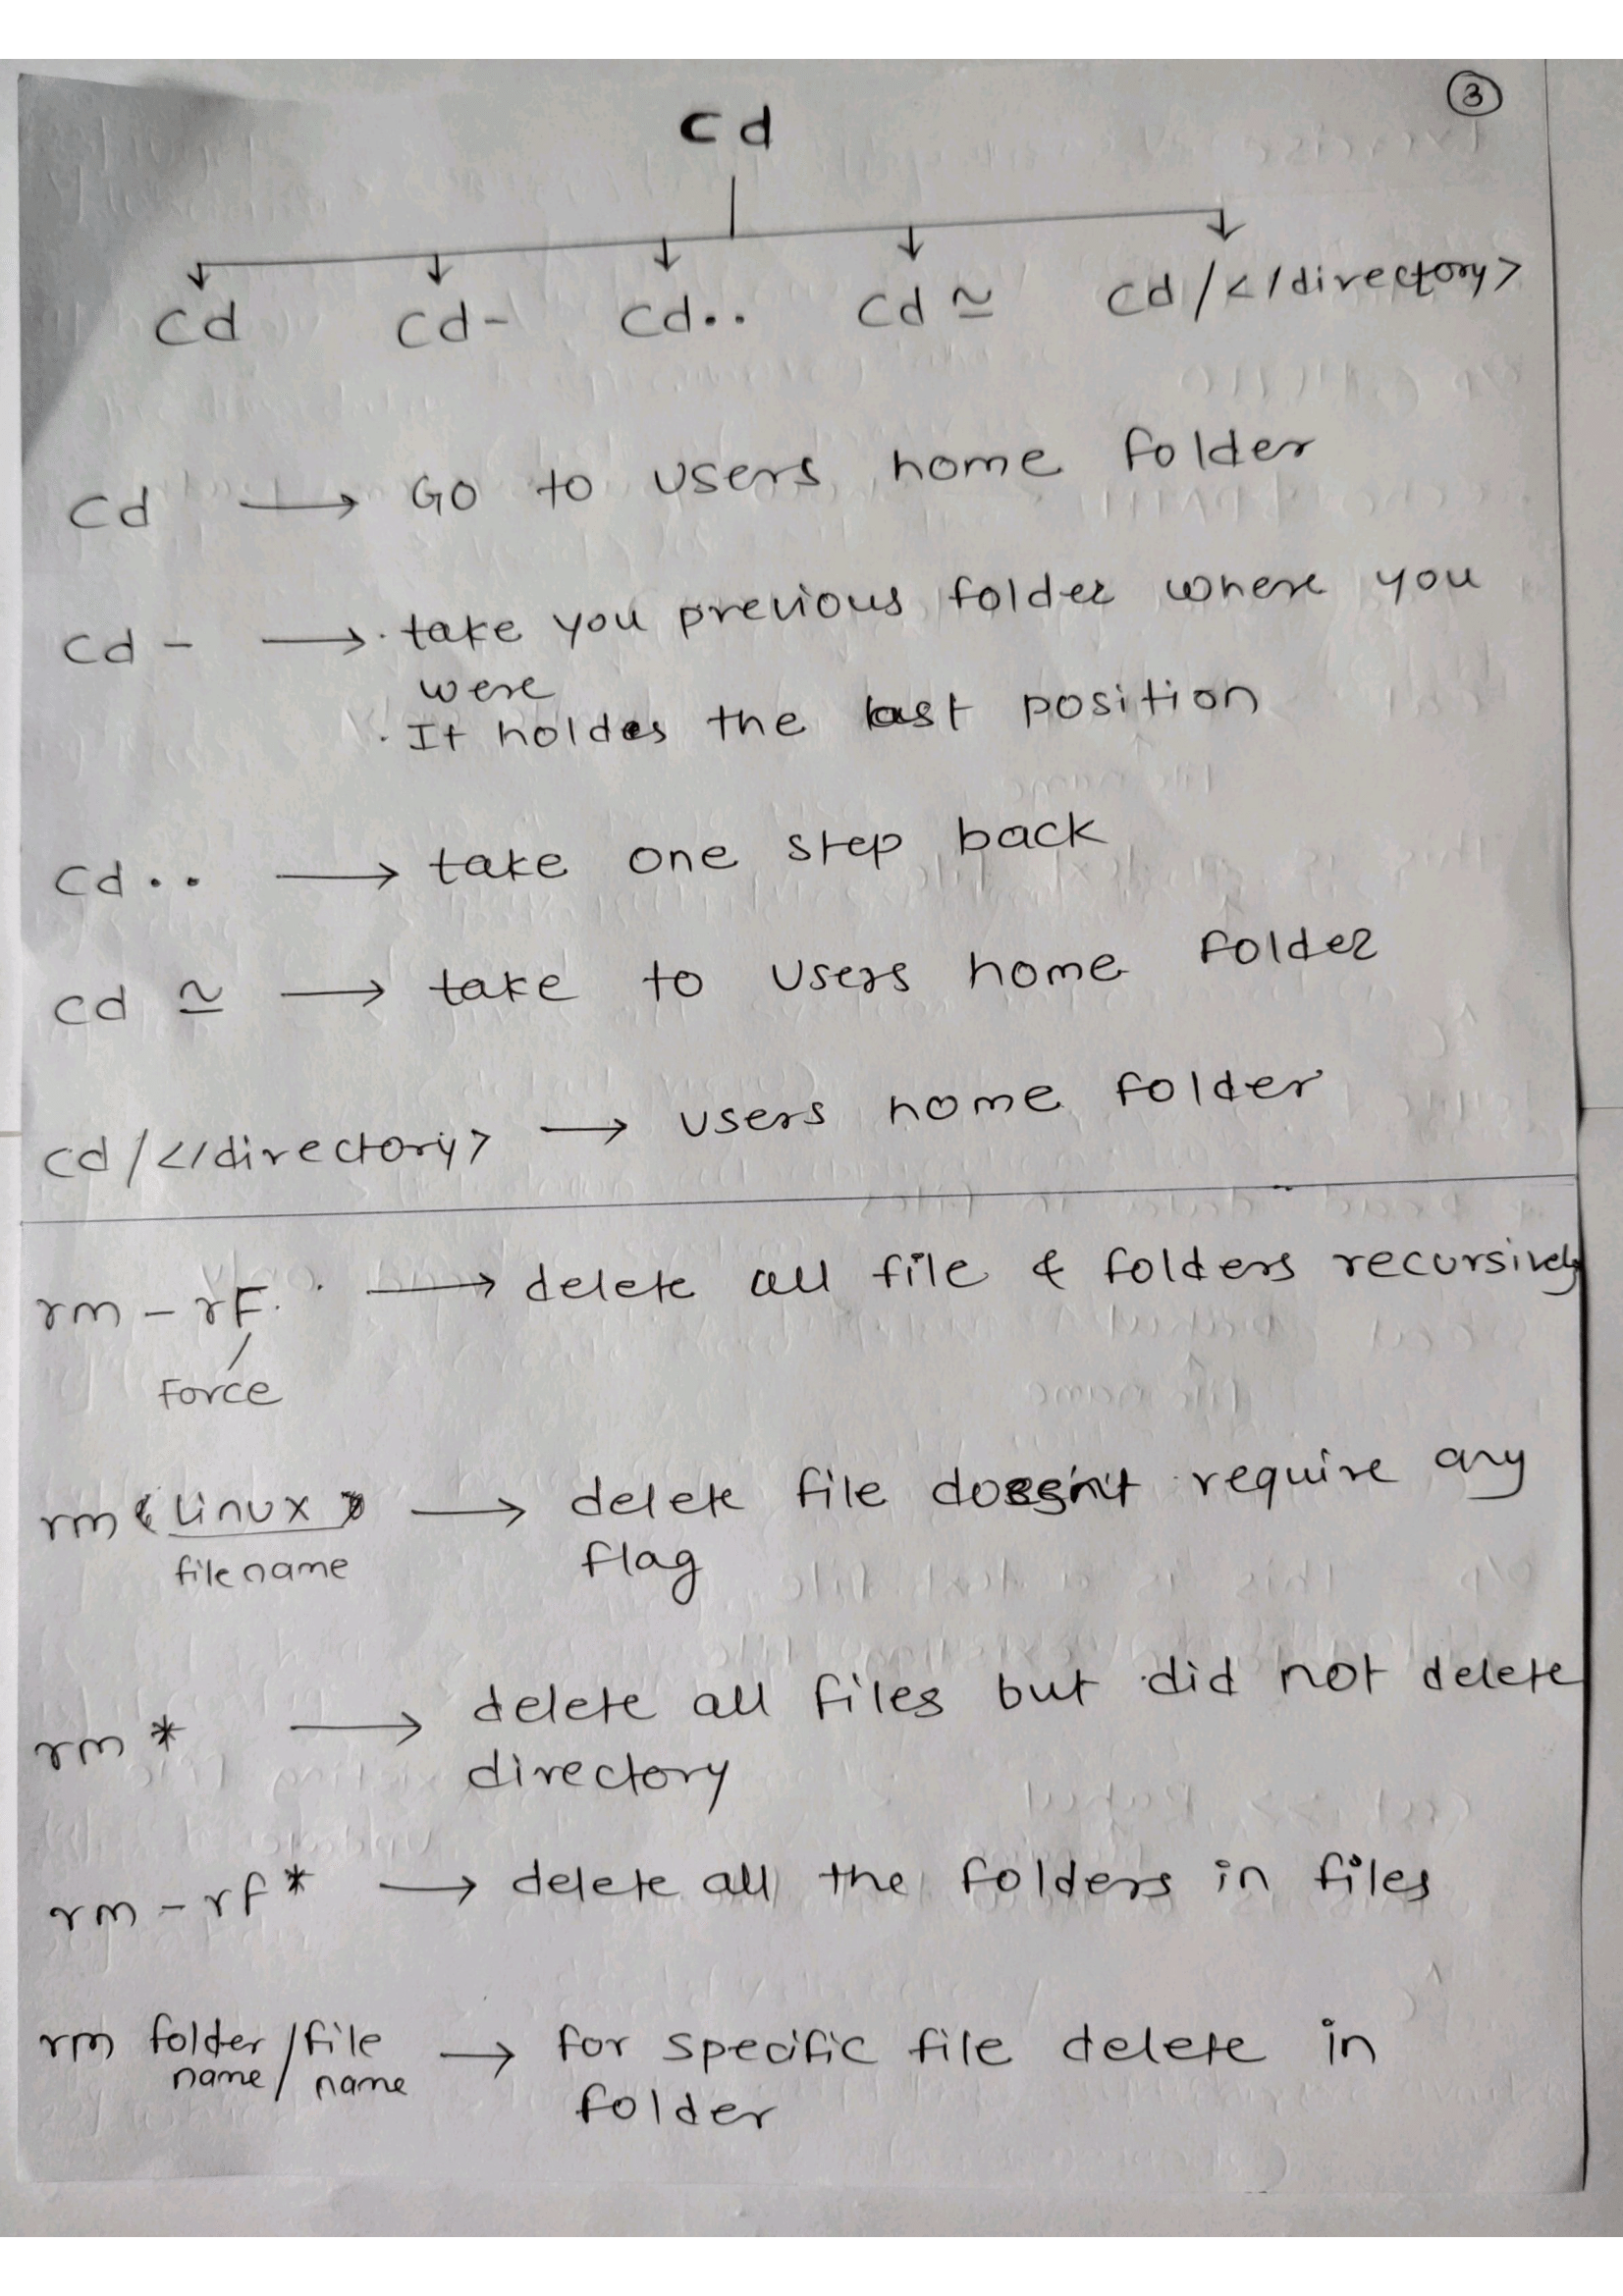 3
cd
cd cd- cd.. cd ≃ cd/</directory>
cd → Go to users home folder
cd - → · take you previous folder where you
were
· It holdes the last position
cd .. → take one step back
cd ≃ → take to users home folder
cd/</directory> → users home folder
rm -rF. → delete all file & folders recursively
Force
rm < Linux > → delete file doesn't require any
filename flag
rm * → delete all files but did not delete
directory
rm -rf * → delete all the folders in files
rm folder / file → for specific file delete in
name / name folder